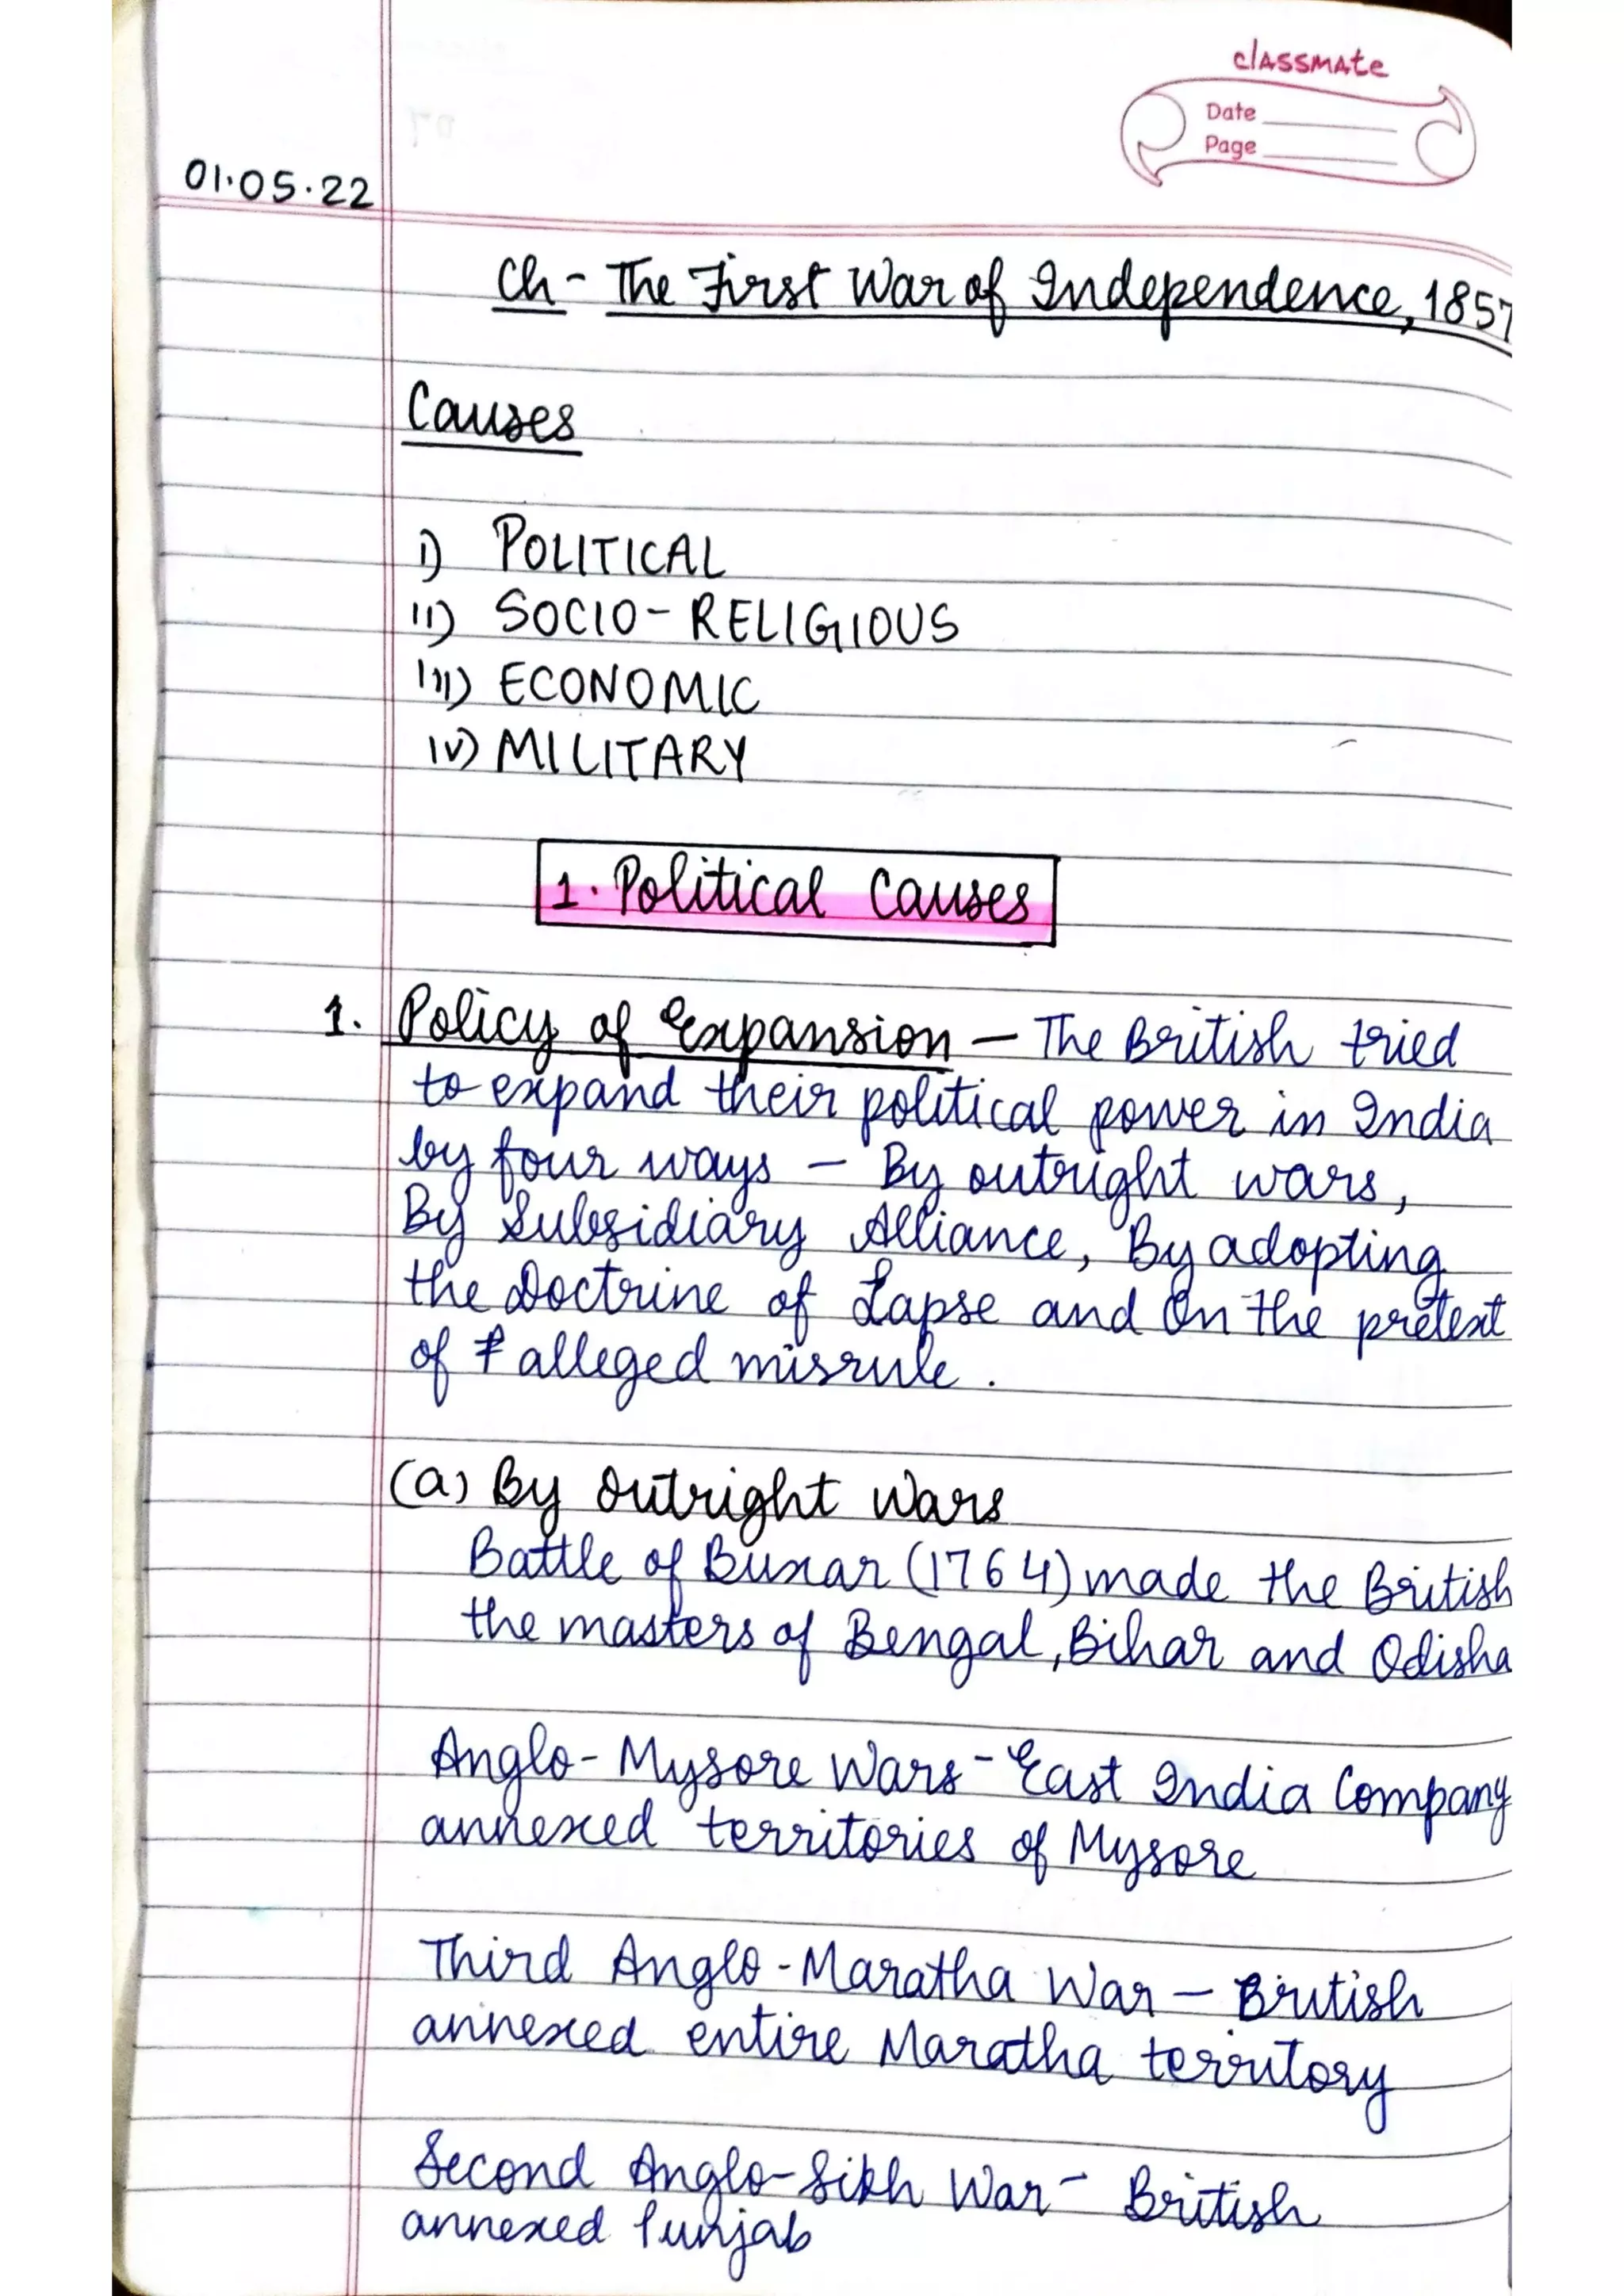 classmate
Date
Page
01.05.22
Ch - The First War of Independence, 1857
Causes
i) POLITICAL
ii) SOCIO-RELIGIOUS
iii) ECONOMIC
iv) MILITARY
1. Political Causes
1. Policy of Expansion - The British tried
to expand their political power in India
by four ways - By outright wars,
By Subsidiary Alliance, By adopting
the Doctrine of Lapse and On the pretext
of alleged misrule.
(a) By Outright Wars
Battle of Buxar (1764) made the British
the masters of Bengal, Bihar and Odisha
Anglo-Mysore Wars - East India Company
annexed territories of Mysore
Third Anglo-Maratha War - British
annexed entire Maratha territory
Second Anglo-Sikh War - British
annexed Punjab